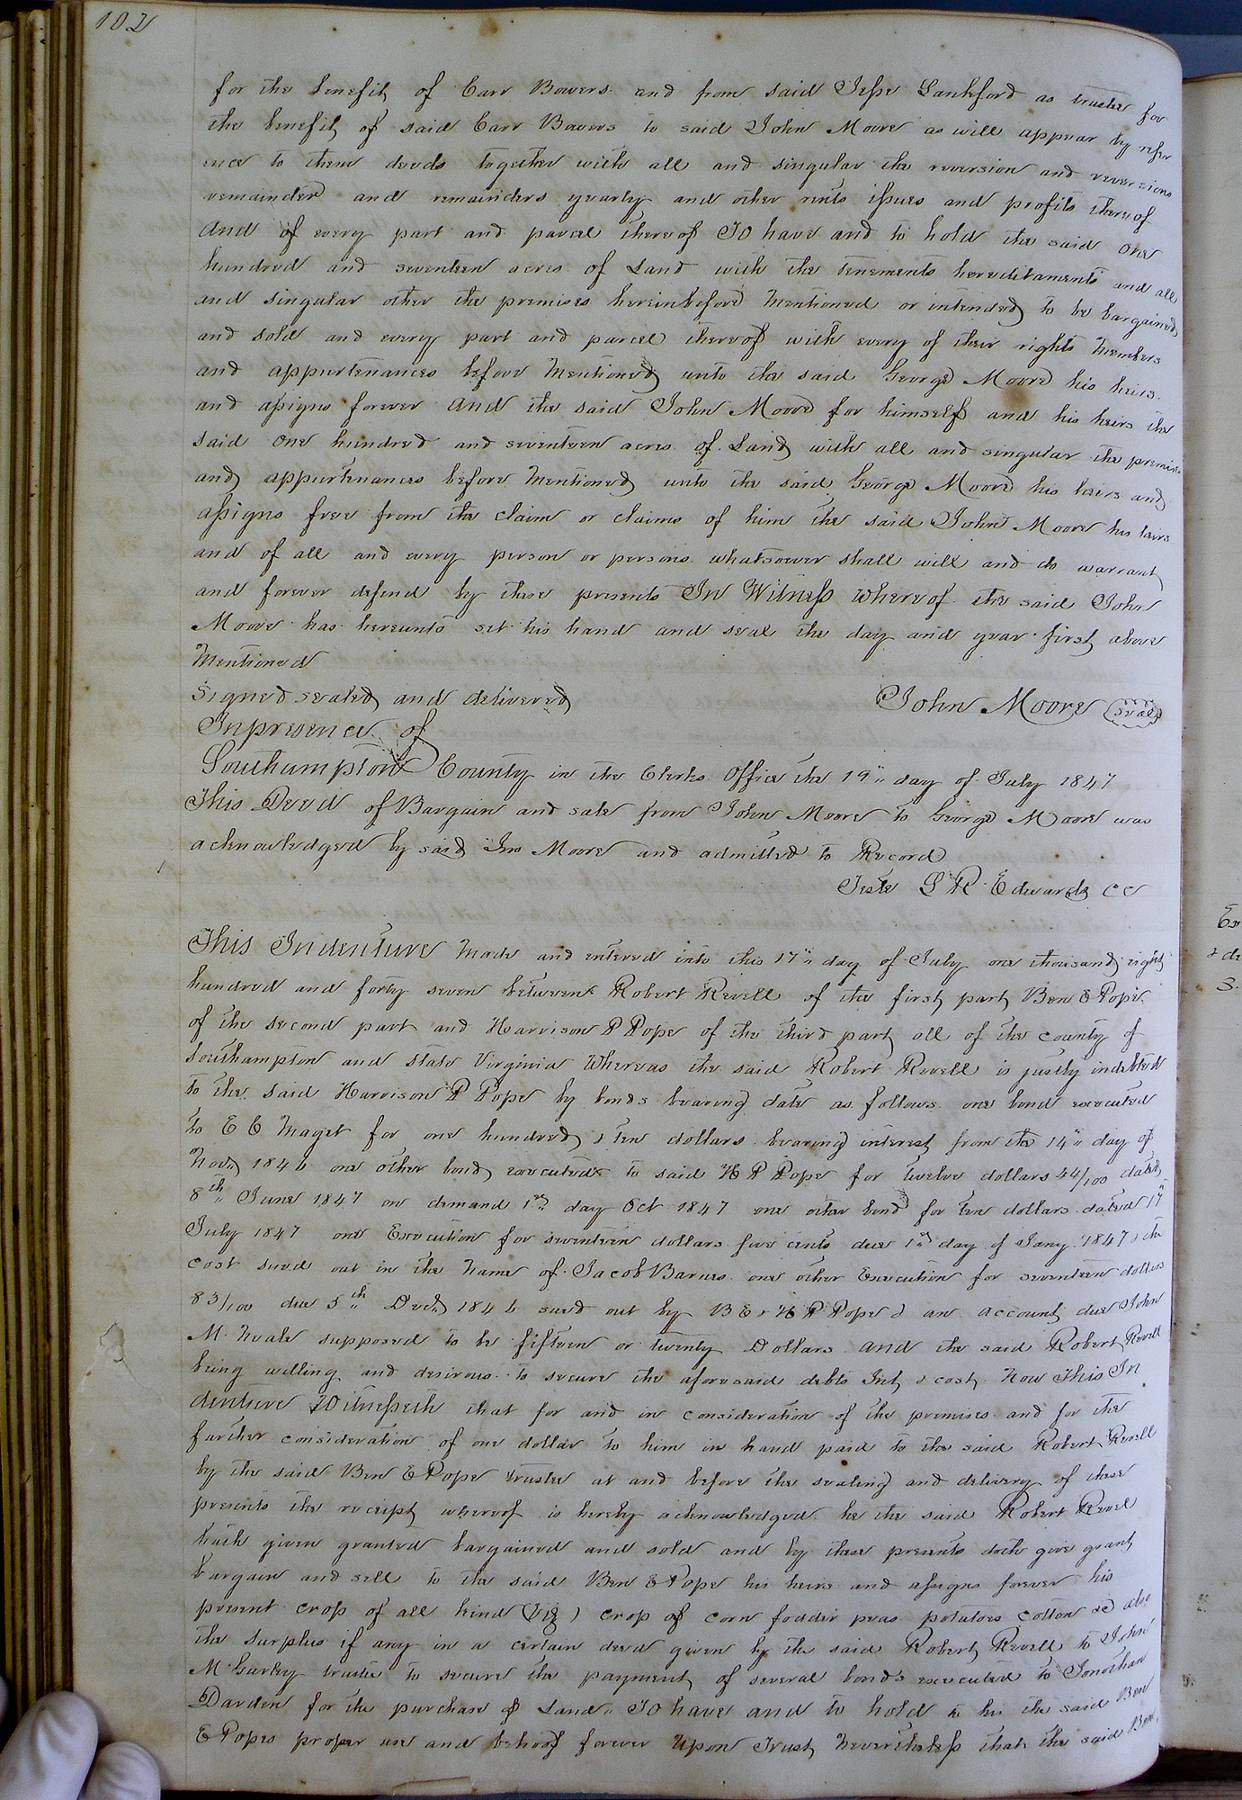 102
for the benefit of Carr Bowers and from said Jesse Lankford as trustee for
the benefit of said Carr Bowers to said John Moore as will appear by refer
ence to them deeds together with all and singular the reversion and reversions
remainder and remainders yearly and other rents issues and profits thereof
And of every part and parcel thereof To have and to hold the said one
hundred and seventeen acres of Land with the tenements hereditaments and all
and singular other the premises hereinbefore mentioned or intended to be bargained
and sold and every part and parcel thereof with every of their rights members
and appurtenances before mentioned unto the said George Moore his heirs
and assigns forever And the said John Moore for himself and his heirs the
said one hundred and seventeen acres of Land with all and singular the premises
and appurtenances before mentioned unto the said George Moore his heirs and
assigns free from the claim or claims of him the said John Moore his heirs
and of all and every person or persons whatsoever shall will and do warrant
and forever defend by these presents In Witness whereof the said John
Moore has hereunto set his hand and seal the day and year first above
mentioned
Signed sealed and delivered John Moore seal
In presence of
Southampton County in the Clerks Office the 19" day of July 1847
This Deed of Bargain and sale from John Moore to George Moore was
acknowledged by said Jno Moore and admitted to Record
Teste L R Edwards CC
This Indenture made and entered into this 17" day of July one thousand eight
hundred and forty seven between Robert Revell of the first part Ben E Pope
of the second part and Harrison P Pope of the third part all of the county of
Southampton and state Virginia Whereas the said Robert Revell is justly indebted
to the said Harrison P Pope by bonds bearing date as follows one bond executed
to E C Maget for one hundred & ten dollars bearing interest from the 14" day of
Novr 1846 one other bond executed to said H P Pope for twelve dollars 44/100 dated
8th June 1847 on demand 1st day Oct 1847 one other bond for ten dollars dated 17"
July 1847 one Execution for seventeen dollars five cents due 1st day of Jany 1847 & the
cost sued out in the name of Jacob Barnes one other Execution for seventeen dollars
83/100 due 5th Decr 1846 sued out by B E & H P Pope & an account due John
M. supposed to be fifteen or twenty Dollars and the said Robert Revell
being willing and desirous to secure the aforesaid debts Int & cost Now This In
denture Witnesseth that for and in consideration of the premises and for the
farther consideration of one dollar to him in hand paid to the said Robert Revell
by the said Ben E Pope trustee at and before the sealing and delivery of these
presents the receipt whereof is hereby acknowledged he the said Robert Revel
hath given granted bargained and sold and by these presents doth give grant
bargain and sell to the said Ben E Pope his heirs and assigns forever his
present crop of all kind (viz) crop of corn fodder peas potatoes cotton &c also
the surplus if any in a certain deed given by the said Robert Revell to John
M trustee to secure the payment of several bonds executed to Jonathan
Darden for the purchase of Land. To have and to hold to his the said Ben
E Popes proper use and behoof forever Upon Trust Nevertheless that the said Ben